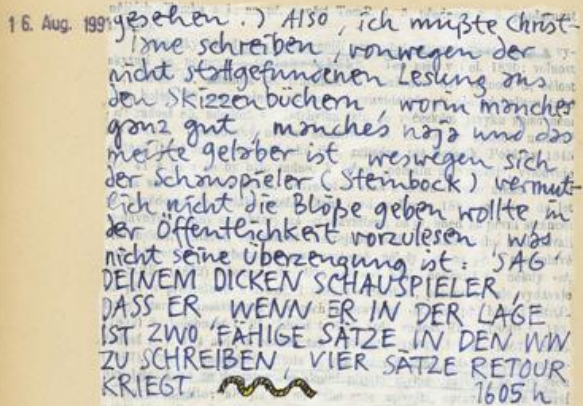 16. Aug. 1991
gesehen.) Also, ich müßte Christ-
iane schreiben vonwegen der
nicht stattgefundenen Lesung aus
den Skizzenbüchern, worin manches
ganz gut, manches naja und das
meiste gelaber ist weswegen sich
der Schauspieler (Steinbock) vermut-
lich nicht die Blöße geben wollte in
der Öffentlichkeit vorzulesen was
nicht seine Überzeugung ist: SAG
DEINEM DICKEN SCHAUSPIELER,
DASS ER, WENN ER IN DER LAGE
IST ZWO FÄHIGE SÄTZE IN DEN WW
ZU SCHREIBEN, VIER SÄTZE RETOUR
KRIEGT
1605 h